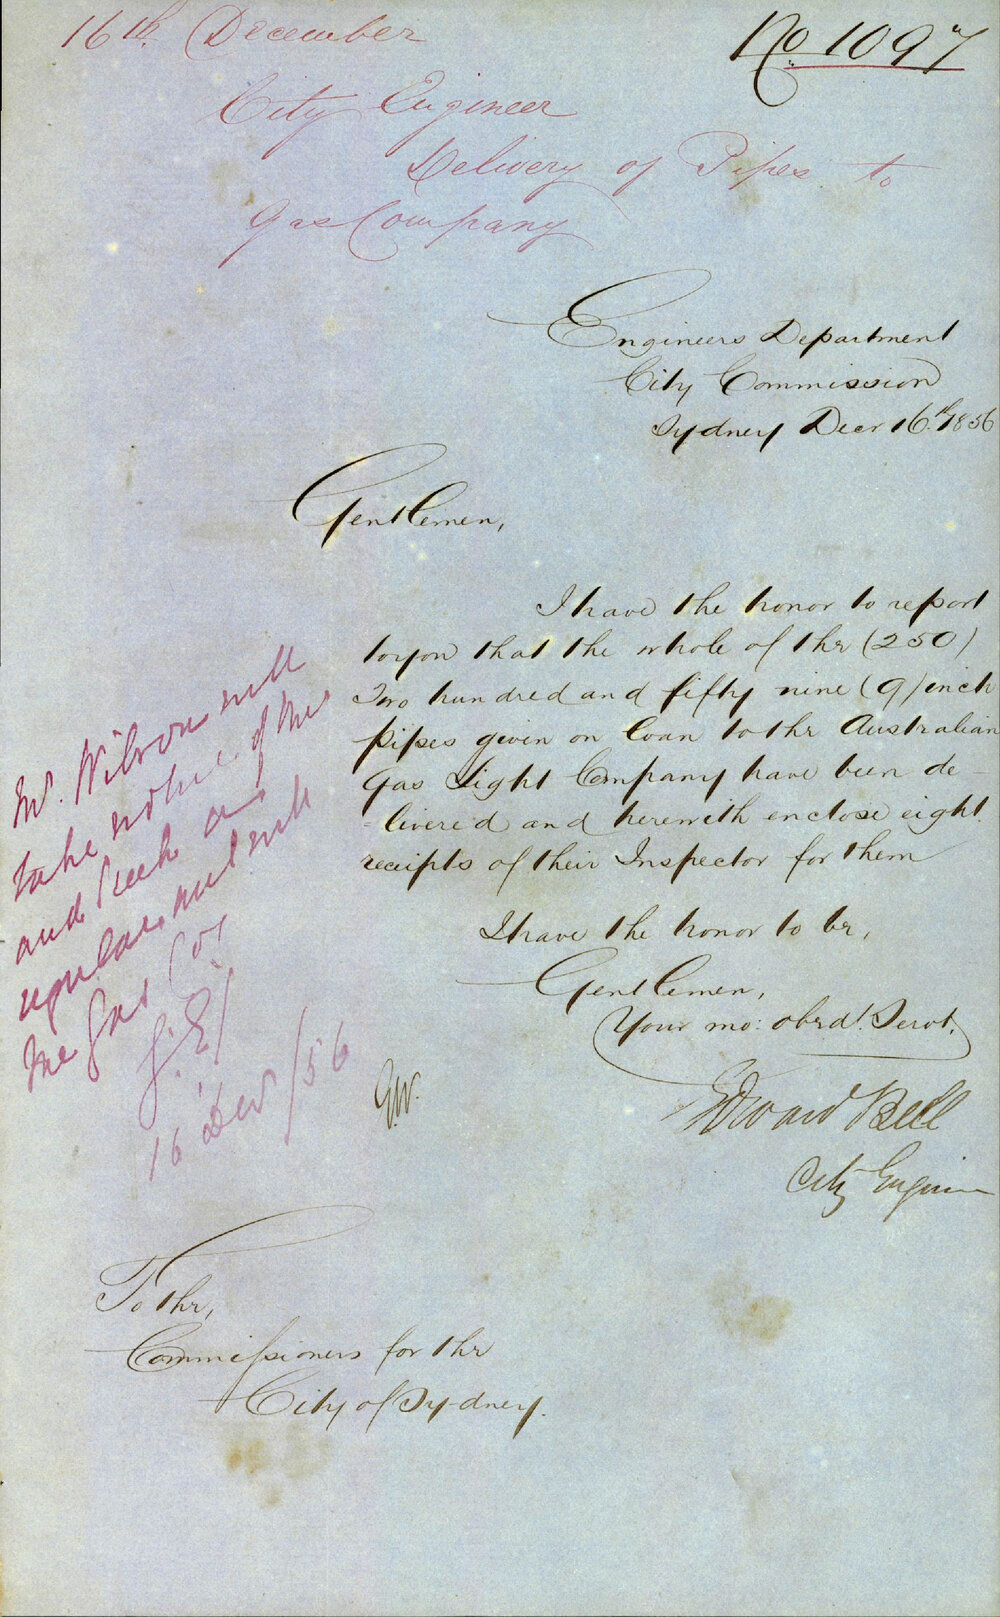 16th December
No 1097
City Engineer
Delivery of Pipes to
Gas Company
Engineers Department
City Commission
Sydney Decr 16th 1856
Gentlemen,
I have the honor to report
to you that the whole of the (250)
Two hundred and fifty nine (9) inch
pipes given on loan to the Australian
Gas Light Company have been de-
livered and herewith enclose eight
receipts of their Inspector for them
I have the honor to be,
Gentlemen,
Your mo: obedt. Servt.
Edward Bell
City Engineer
Mr. Wilson will
take notice of this
and keep a
regular acct with
the Gas Coy
16 Decr /56
G.W.
To the,
Commissioners for the
City of Sydney.